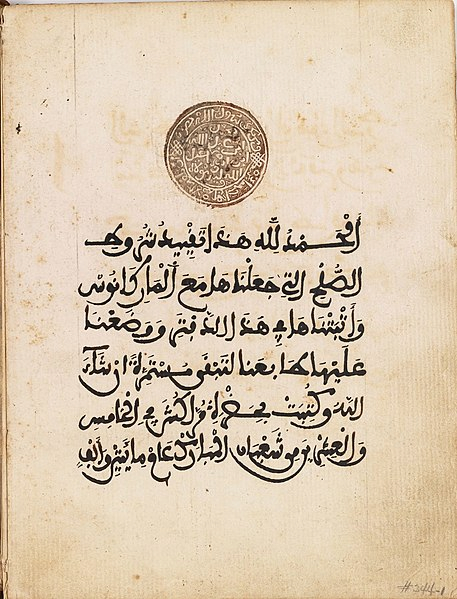 اَلحمدُ للّه هذا تقييد شروط
الصُّلحِ التي جعلناها مع اَلمار كانوس
واَثبتناها في هذا الدفتر ووضعنا
عليها طابعنا لتبقى مستمرة اِن شاء
الله وكُتِبت بحضرة مراكش في الخامس
والعشرين من شعبان المبارك عام مايتين والف
#244-1